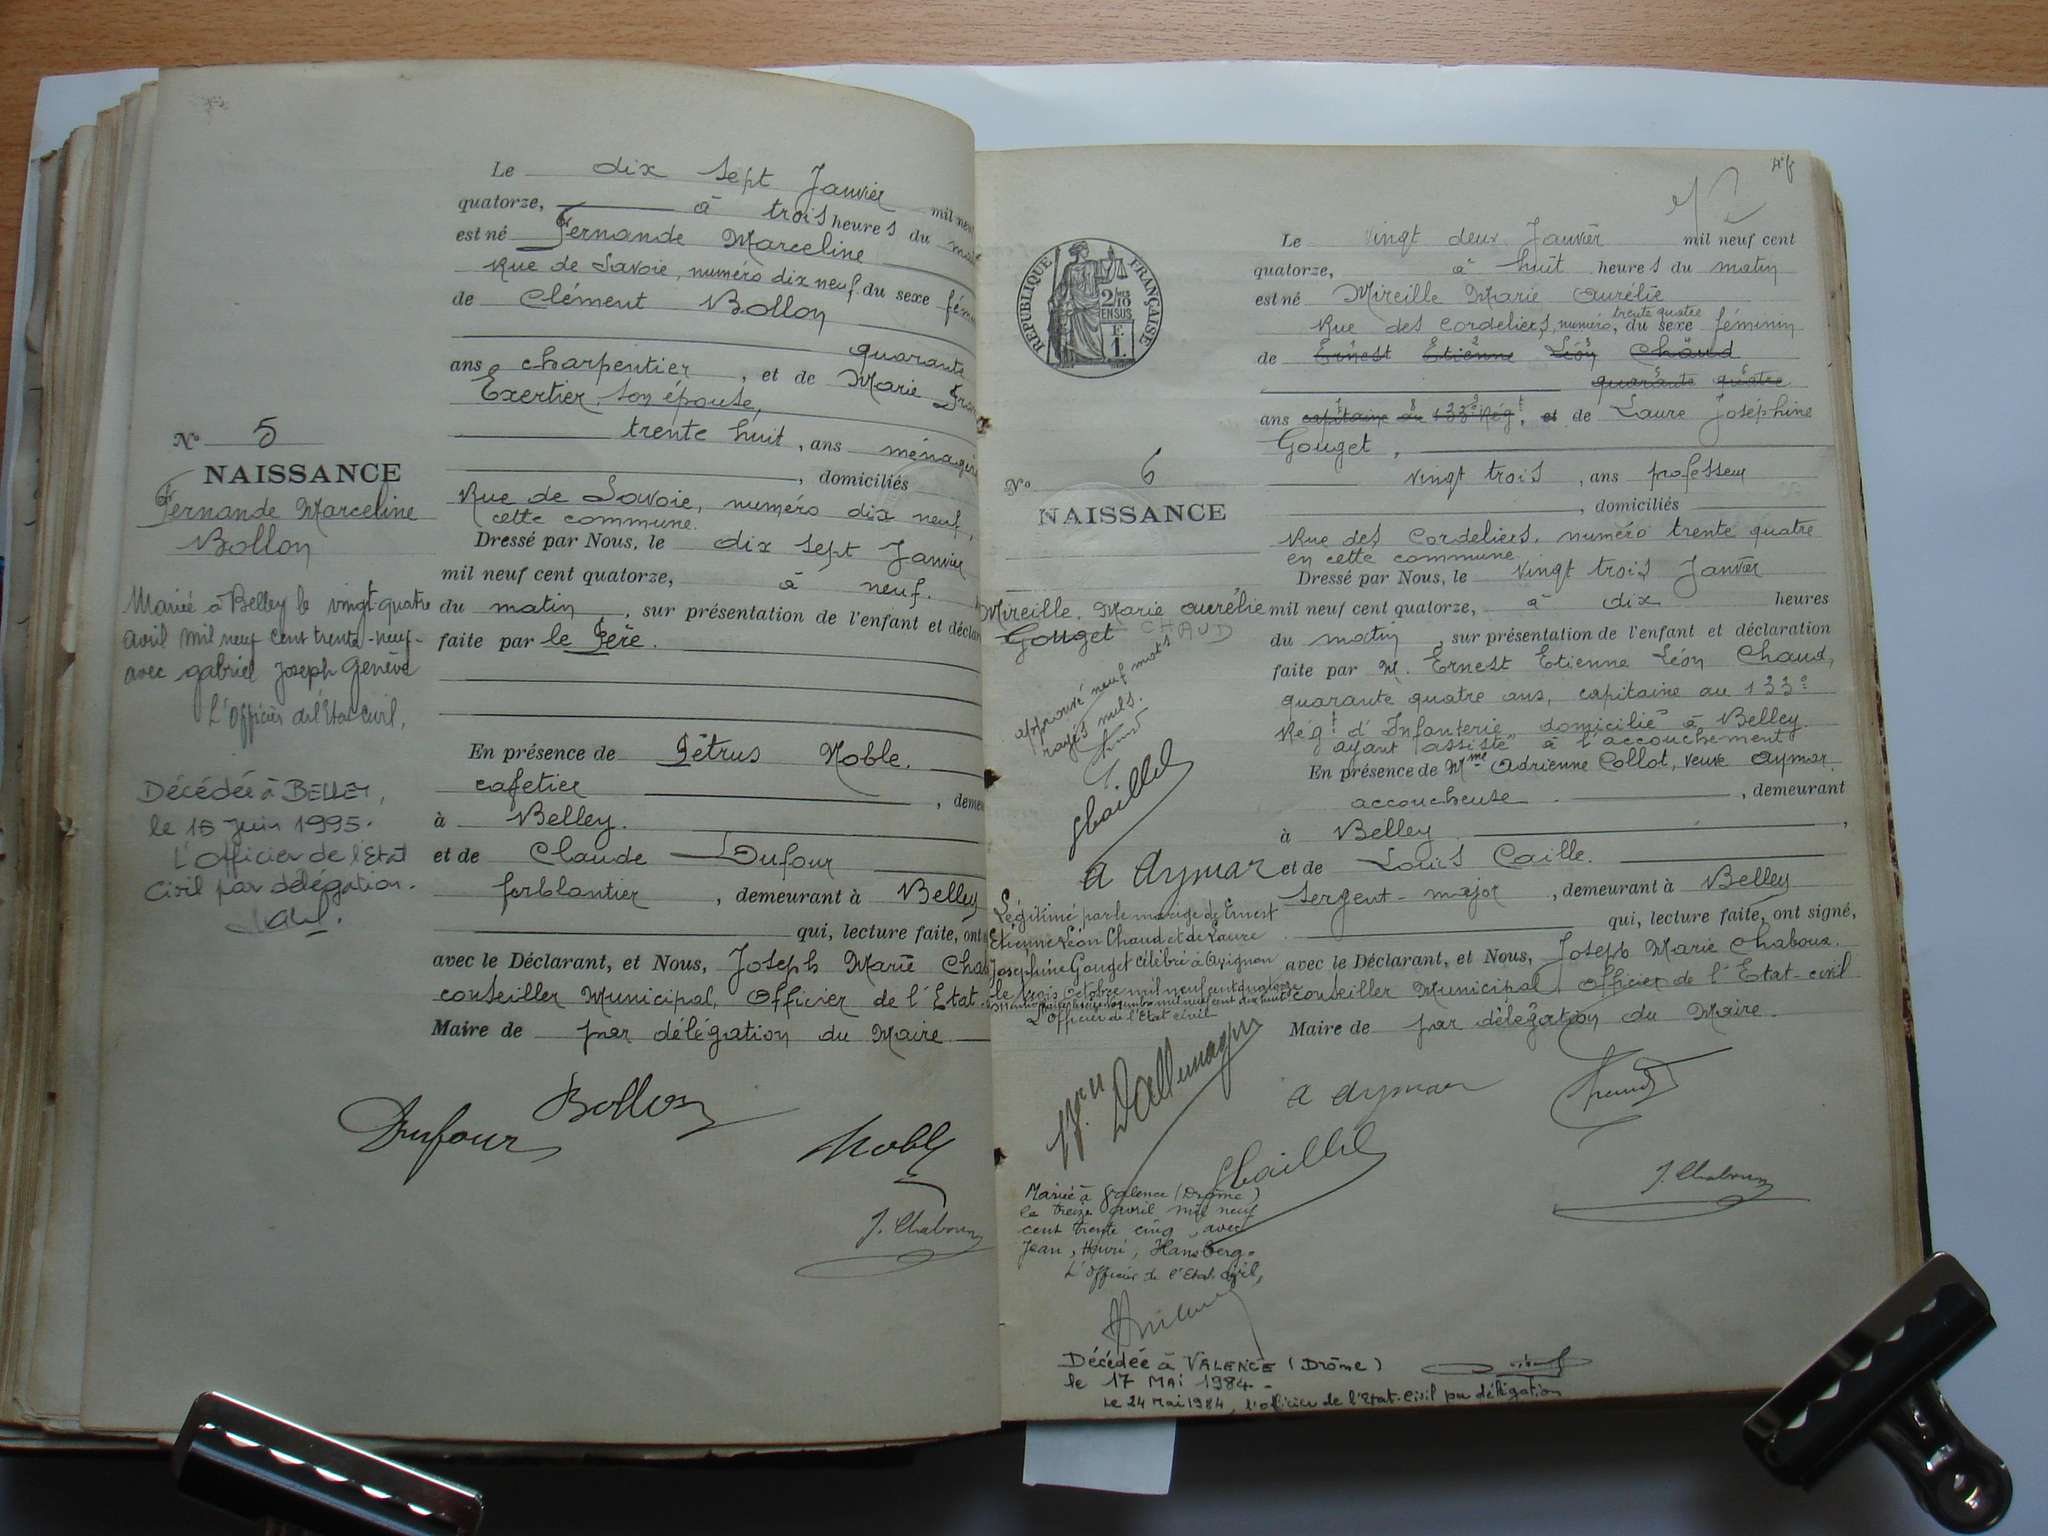 Le dix sept Janvier mil neuf
quatorze, à trois heures du matin
est né Fernande Marceline
Rue de Savoie, numéro dix neuf du sexe fémin
de Clément Bollon
quarante
ans charpentier, et de Marie
Exertier, son épouse,
trente huit, ans ménagère
, domiciliés
Rue de Savoie, numéro dix neuf,
cette commune.
Dressé par Nous, le dix sept Janvier
mil neuf cent quatorze, à neuf.
du matin, sur présentation de l'enfant et déclar
faite par le Père.
En présence de Pétrus Noble.
cafetier, demeu
à Belley.
et de Claude Dufour
ferblantier, demeurant à Belley
qui, lecture faite, ont
avec le Déclarant, et Nous, Joseph Marie Chab
conseiller Municipal, Officier de l'Etat
Maire de par délégation du Maire
Dufour Bollon Noble
J. Chaboux
No 5
NAISSANCE
Fernande Marceline
Bollon
Mariée à Belley le vingt-quatre
avril mil neuf cent trente-neuf
avec gabriel Joseph Genève
L'Officier de l'Etat Civil,
Décédée à BELLEY,
le 16 Juin 1995.
L'Officier de l'Etat
Civil par délégation.
RÉPUBLIQUE FRANÇAISE
2/10
EN SUS
F.
1.
Le vingt deux Janvier mil neuf cent
quatorze, à huit heures du matin
est né Mireille Marie Aurélie
trente quatre
Rue des Cordeliers, numéro, du sexe féminin
de Ernest Etienne Léon Chaud
quarante quatre
ans capitaine au 133e Régt, et de Laure Joséphine
Gouget,
vingt trois, ans professeur
, domiciliés
Rue des Cordeliers, numéro trente quatre
en cette commune
Dressé par Nous, le vingt trois Janvier
mil neuf cent quatorze, à dix heures
du matin, sur présentation de l'enfant et déclaration
faite par M. Ernest Etienne Léon Chaud,
quarante quatre ans, capitaine au 133e
Régt d'Infanterie domicilié à Belley.
ayant assisté à l'accouchement
En présence de Mme Adrienne Collot, veuve Aymar,
accoucheuse, demeurant
à Belley,
et de Louis Caille.
sergent-major, demeurant à Belley
qui, lecture faite, ont signé,
avec le Déclarant, et Nous, Joseph Marie Chaboux.
conseiller Municipal, Officier de l'Etat-civil
Maire de par délégation du Maire.
A Aymar
J. Chaboux
No 6
NAISSANCE
Mireille Marie Aurélie
Gouget CHAUD
approuvé neuf mots
rayés nuls.
A Aymar
Légitimé par le mariage de Ernest
Etienne Léon Chaud et de Laure
Joséphine Gouget célébré à Avignon
le trois octobre mil neuf cent quatorze
L'Officier de l'Etat civil
Dallemagne
Mariée à Valence (Drôme)
le treize avril mil neuf
cent trente cinq avec
Jean, Henri, Hansberg.
L'Officier de l'Etat civil,
Décédée à VALENCE (Drôme)
le 17 MAI 1984
Le 24 Mai 1984, l'officier de l'Etat-Civil par délégation